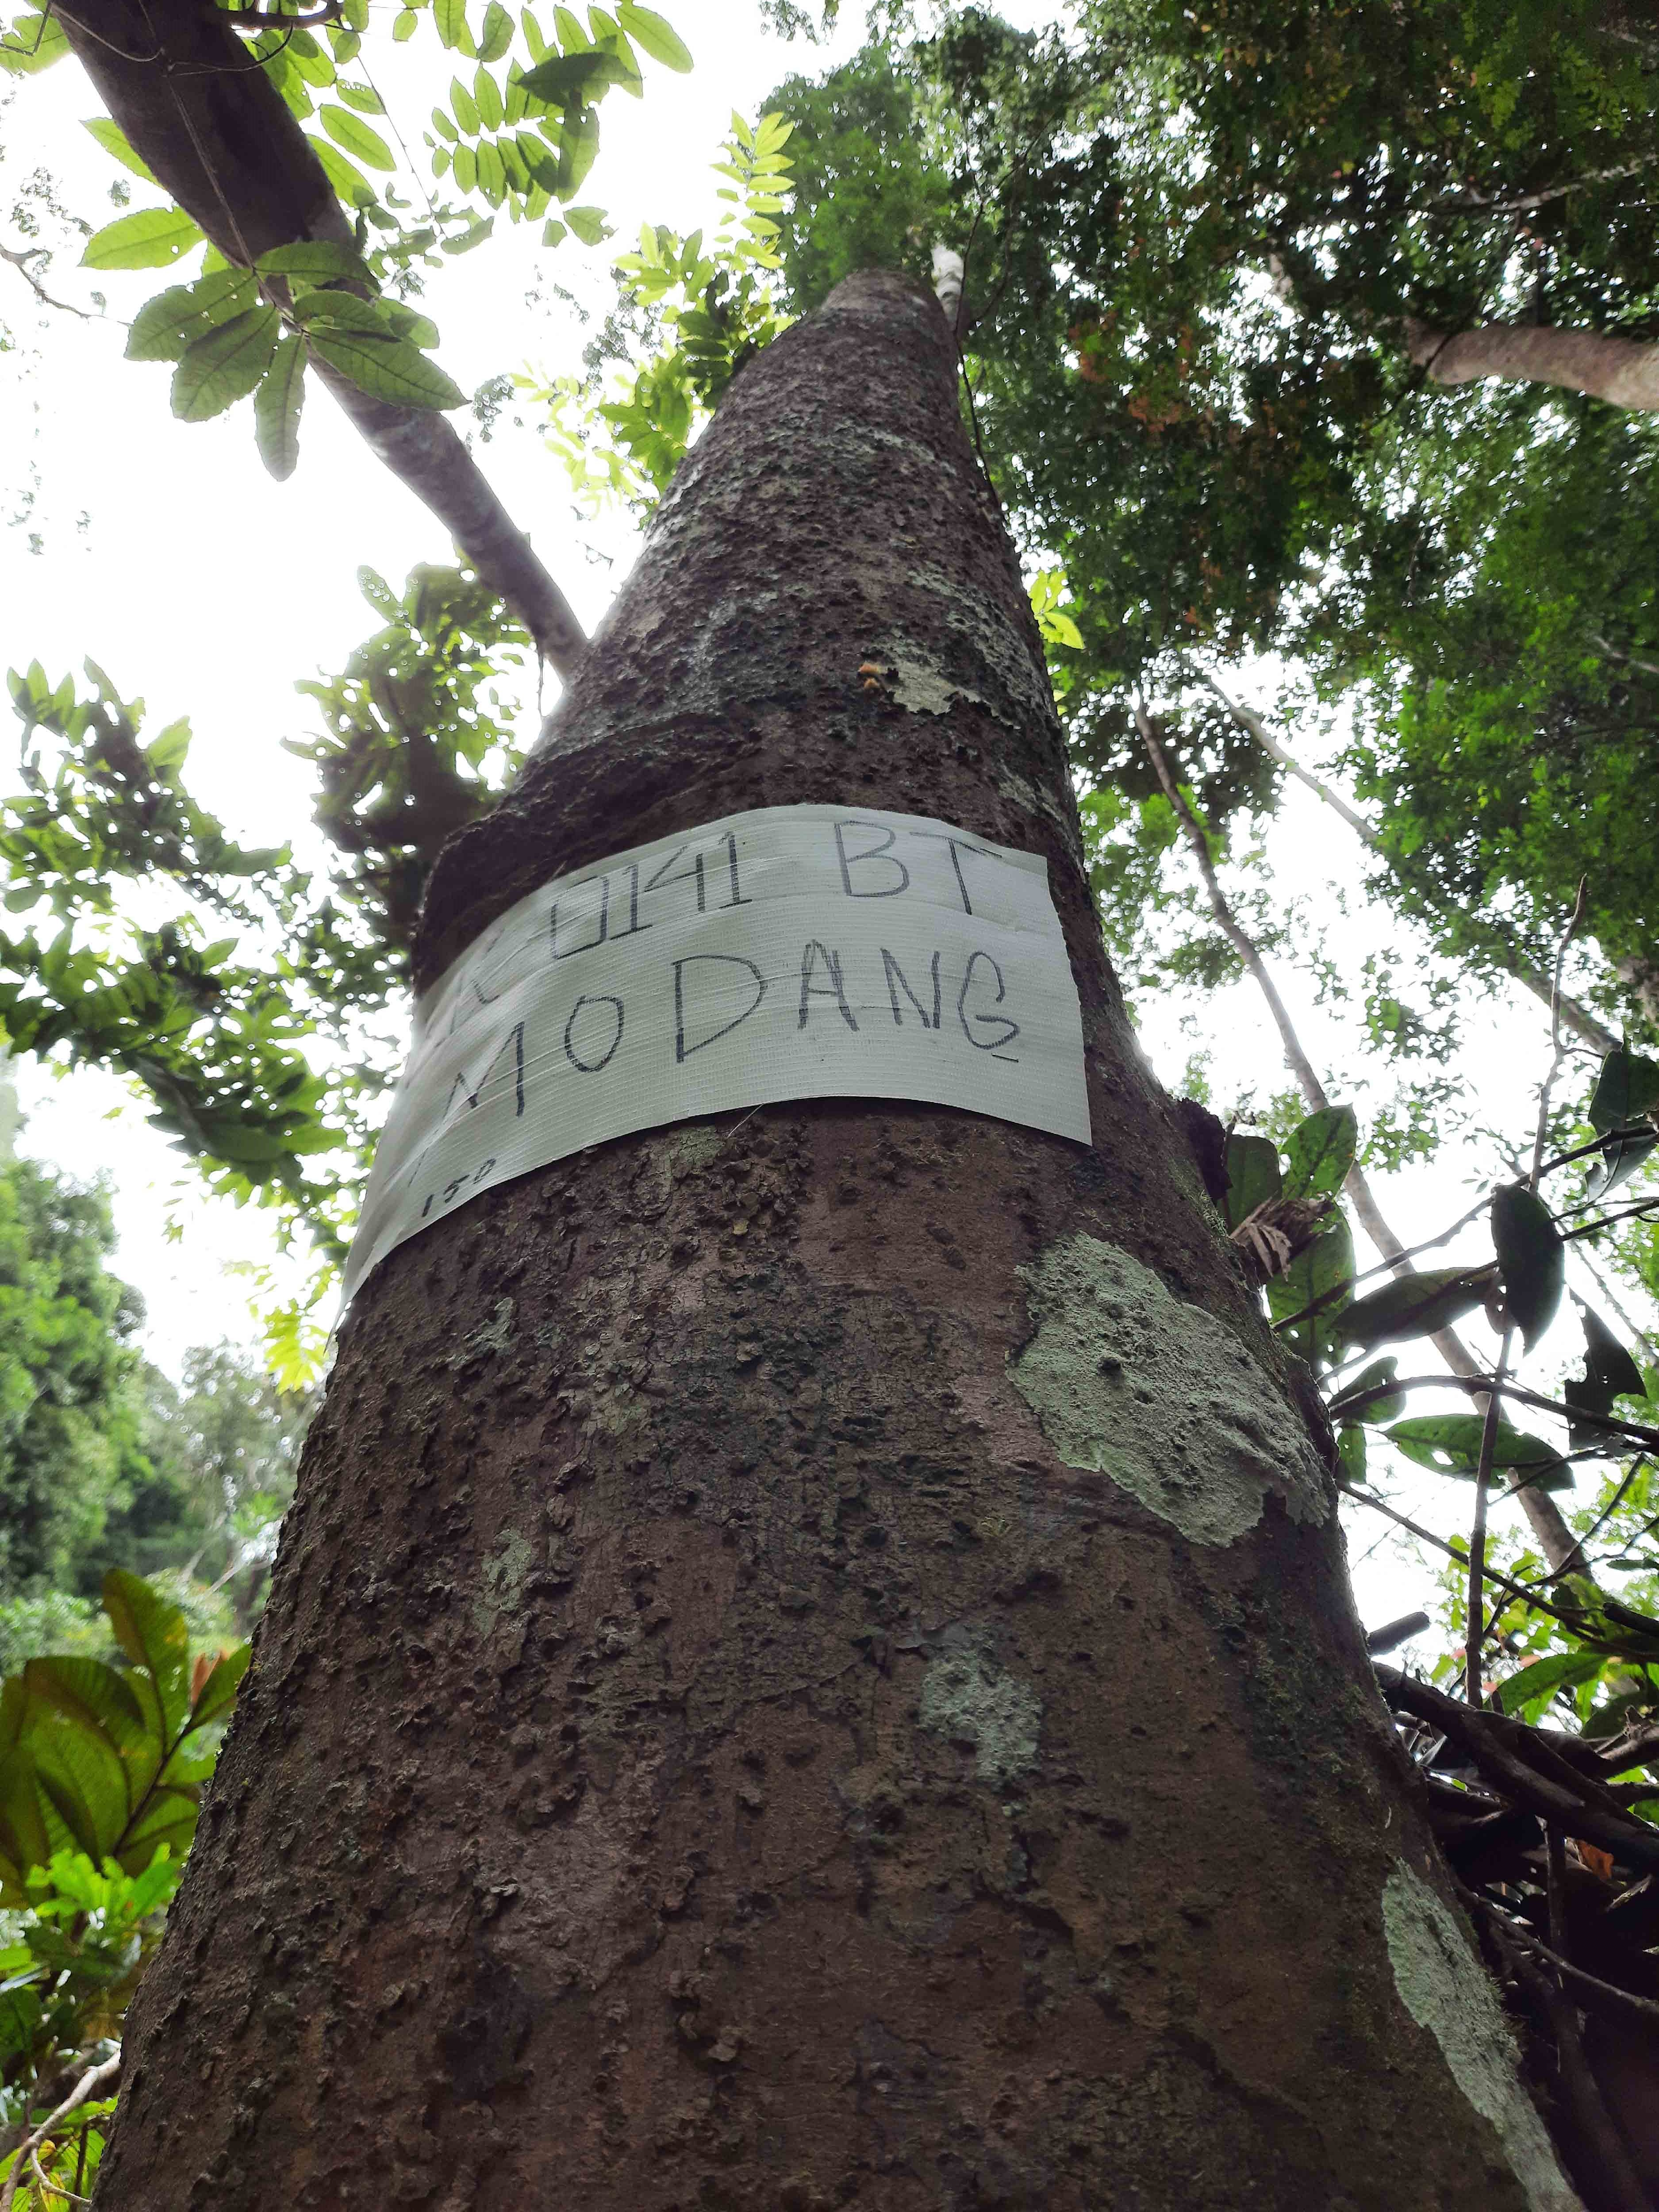 0141 BT
MODANG
150